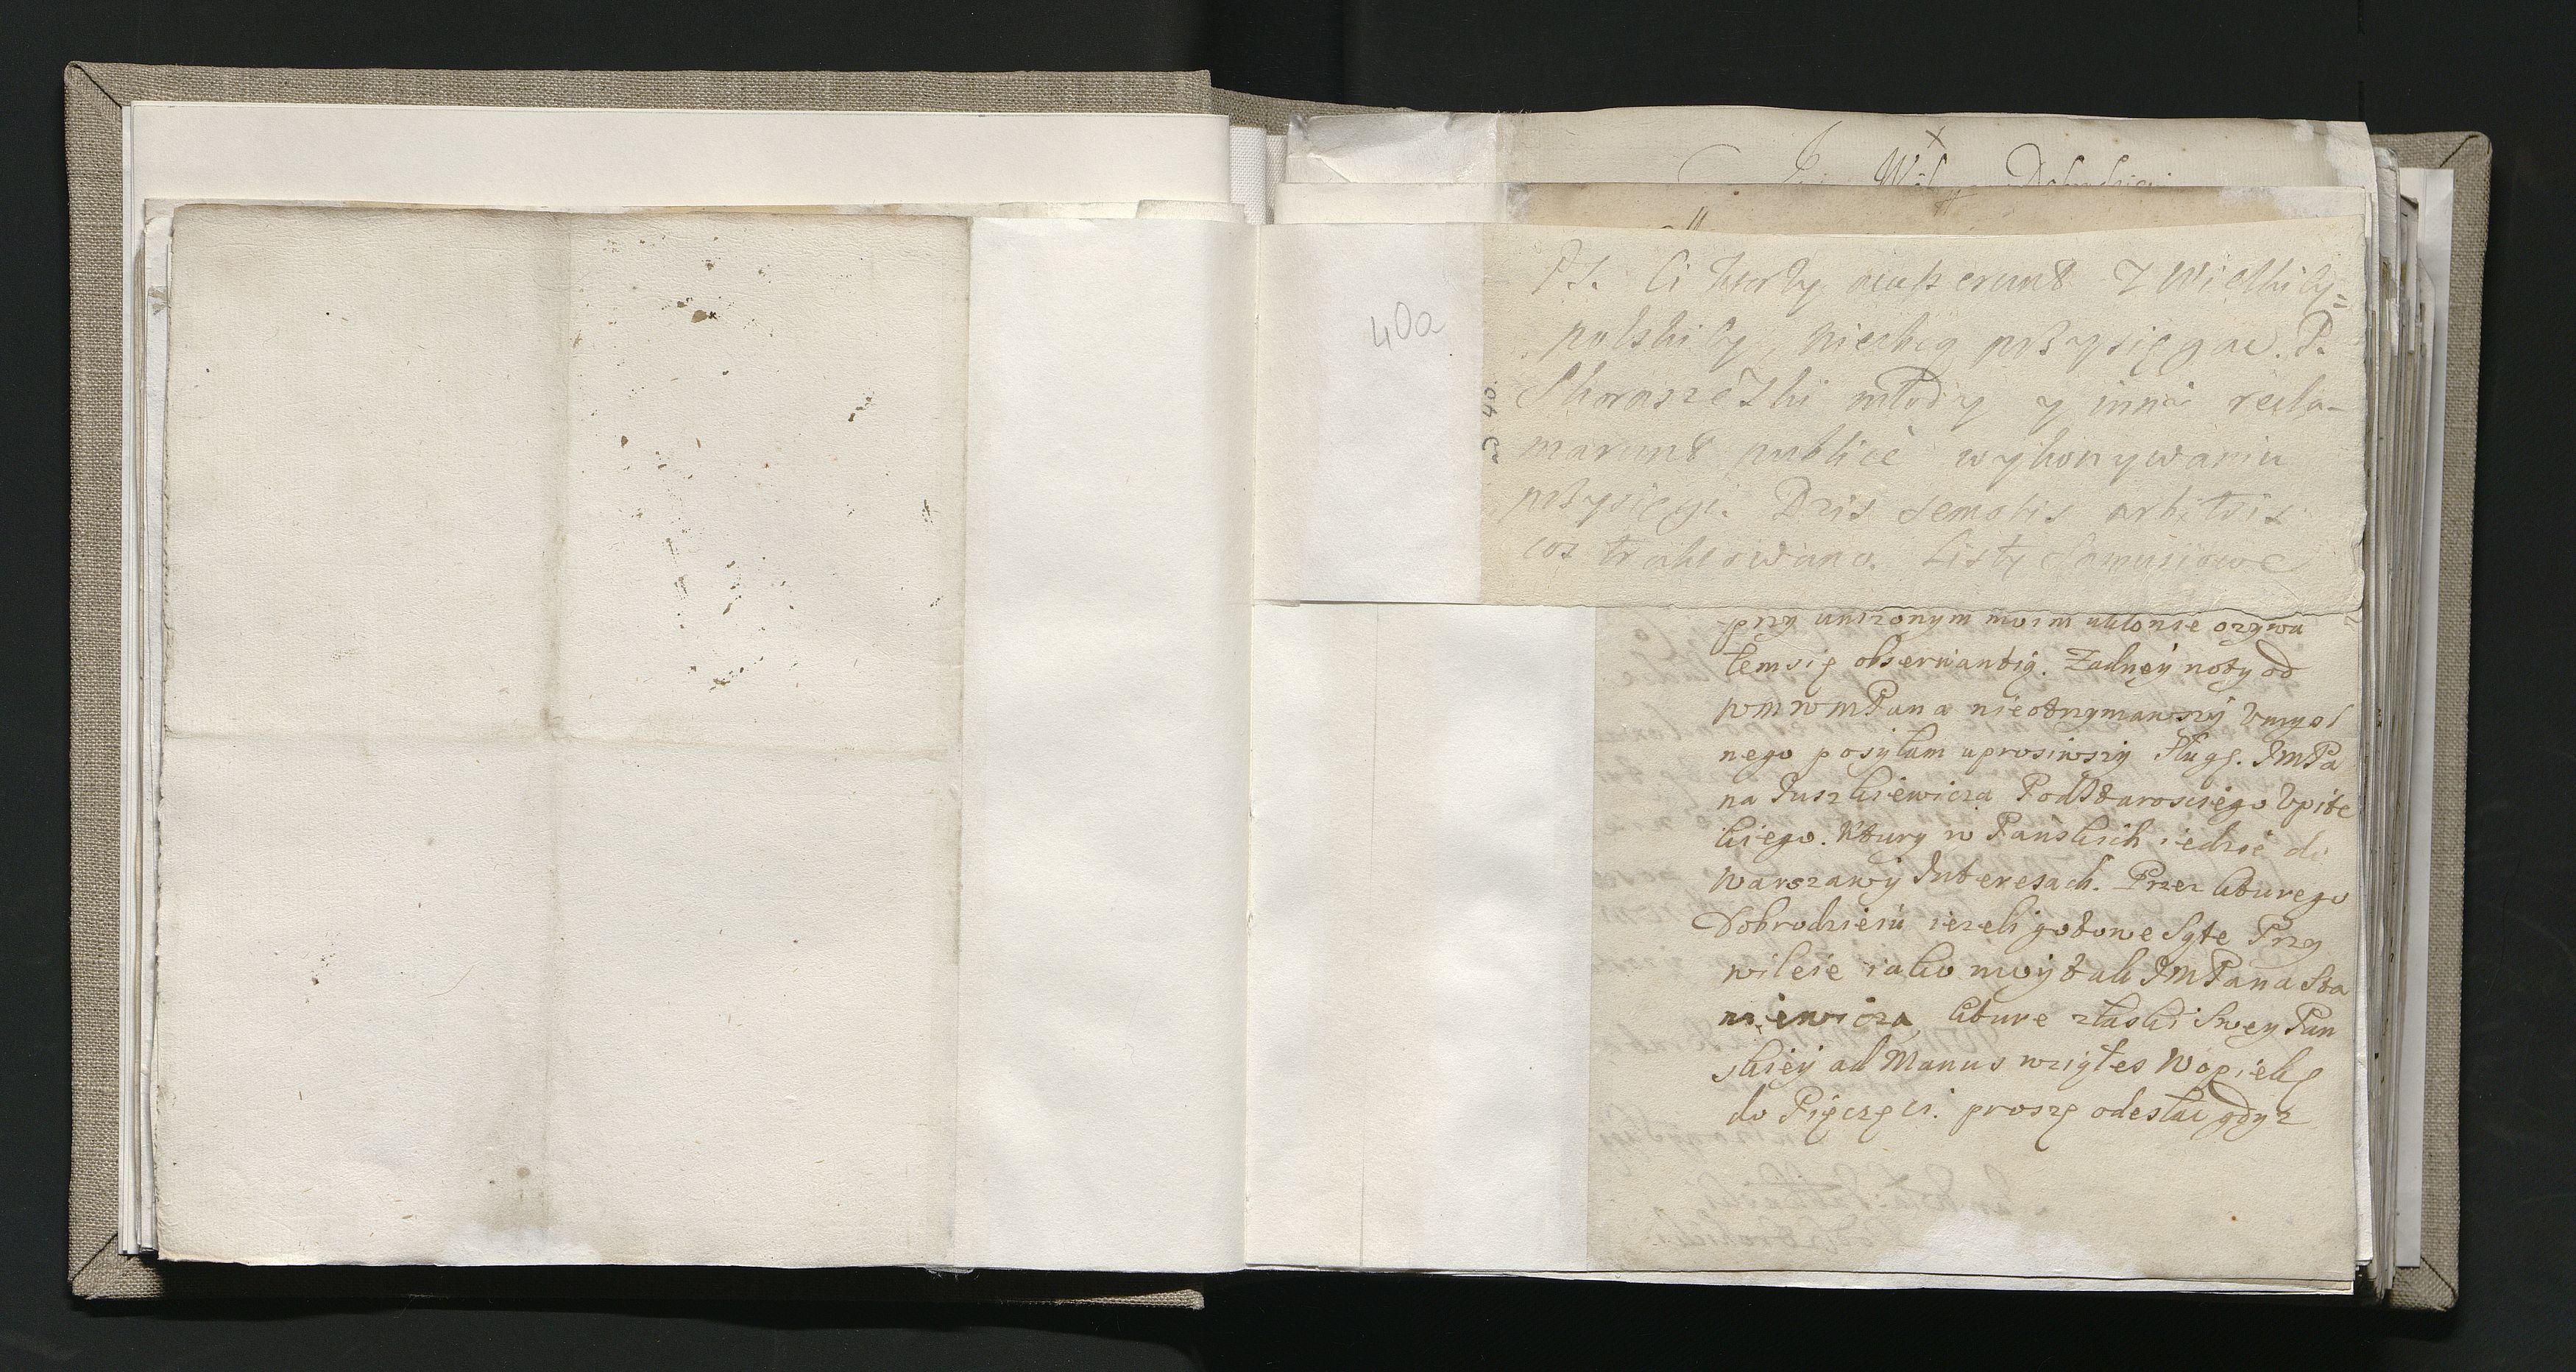 Dobrodzieiu
40a
P.S. Ci ktorzy z Wielkiey=
polskiley, niechcą przysięgac. P.
Skoraszewski młody y inni recla-
marunt publice wykonywaniu
przysięgi. Dzis semotis arbitris
cos traktowano. Listy Samusiowe
do 40.
przy unizonym moim ukłonie ozywa
łem się obserwantią. Zadney noty od
WMWMPana nieotrzymawszy Vmysl
nego posyłam uprosiwszy Sługę. JMPa
na Juszkiewicza PodStarosciego Vpite
kiego. Ktury w Pańskich iedzie do
Warszawy Interesach. Przez kturego
Dobrodzieiu iezeli gotowe Są te Przy
wileie iako moy tak JMPana Sta
niewicza, kture złaski Swey Pan
skiey ad Manus wziąłes Wopiekę
do Pięczęci. proszę odesłac gdyz